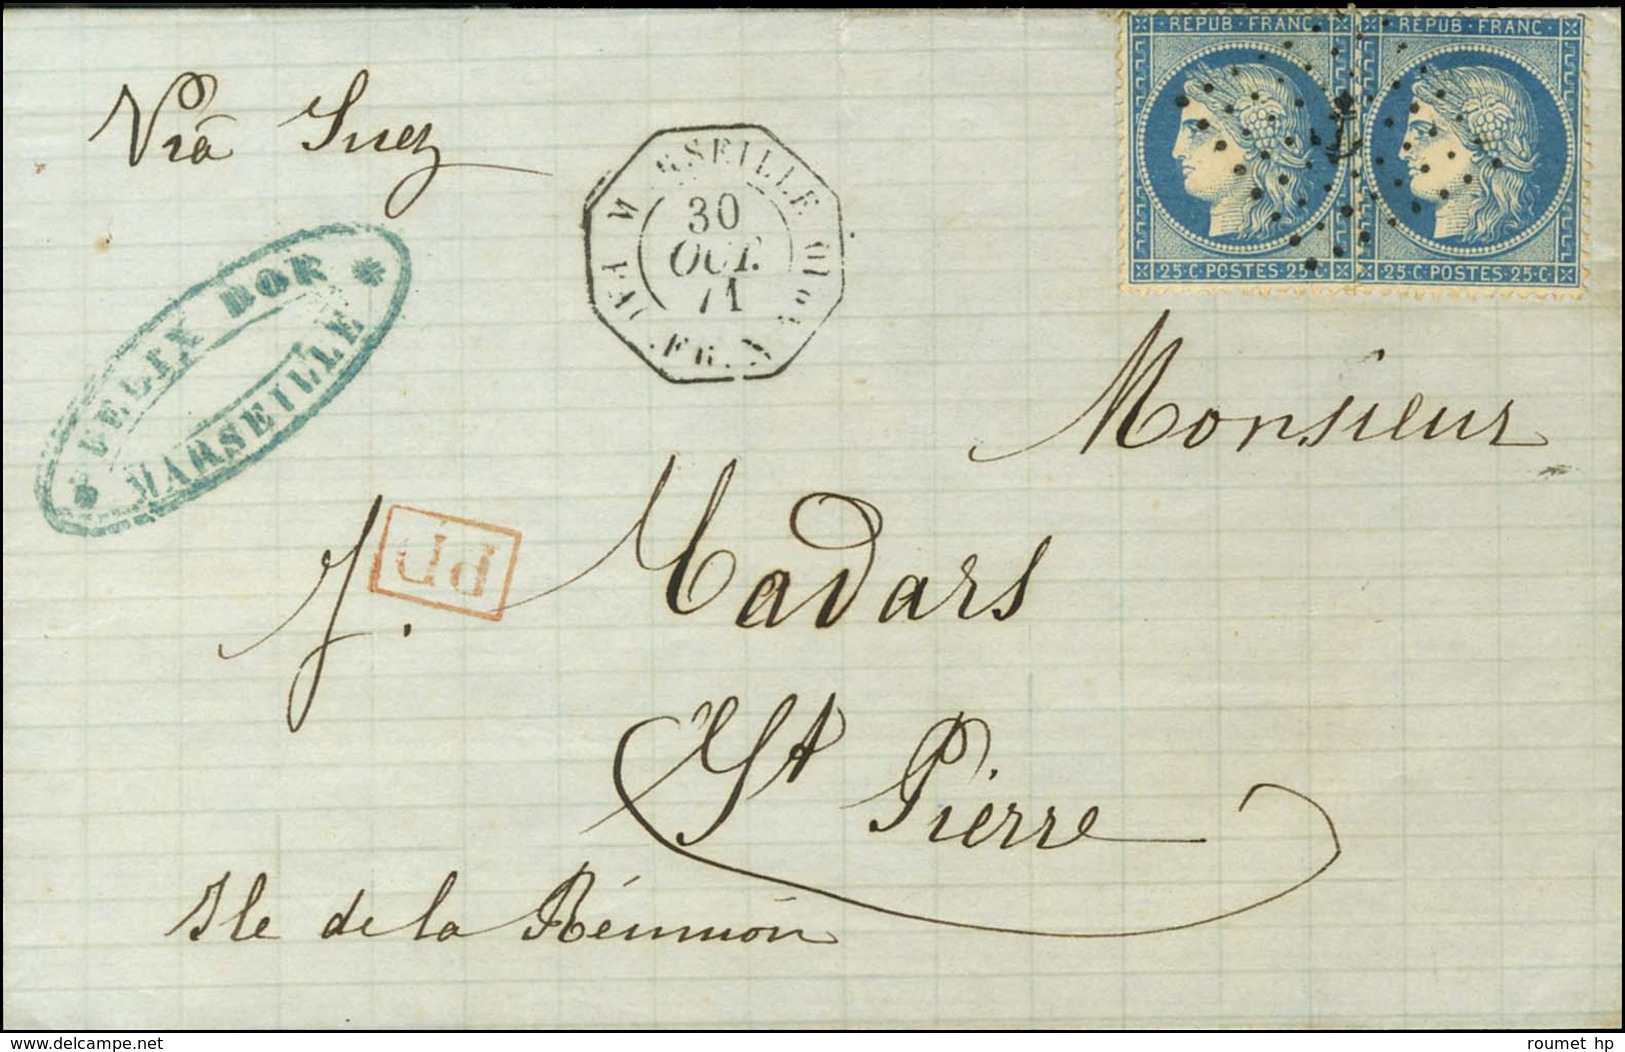 REPUB·FRANC· REPUB·FRANC·
25·C·POSTES·25·C· 25·C·POSTES·25·C·
Via Suez
MARSEILLE
30
OCT.
71
FELIX BOR
MARSEILLE
PD
Monsieur
J. Madars
St Pierre
Ile de la Réunion
www.delcampe.net
roumet hp